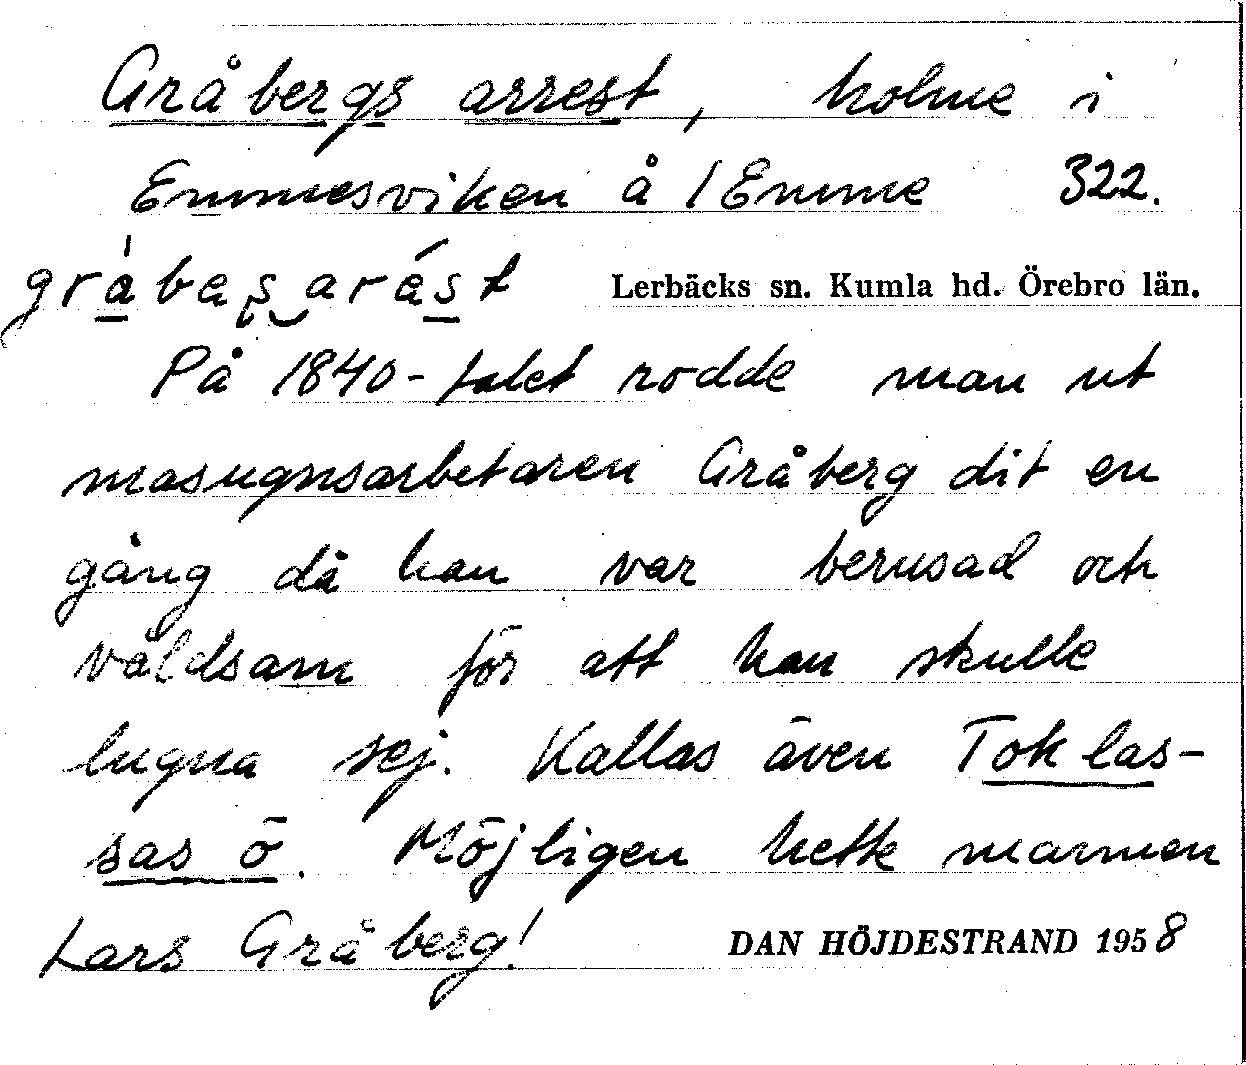 Gråbergs arrest, holme i
Emmesviken å 1 Emme 322.
gråbaʂ arést Lerbäcks sn. Kumla hd. Örebro län.
På 1840-talet rodde man ut
masugnsarbetaren Gråberg dit en
gång då han var berusad och
våldsam för att han skulle
lugna sej. Kallas även Tok las-
sas ö. Möjligen hette mannen
Lars Gråberg!
DAN HÖJDESTRAND 1958